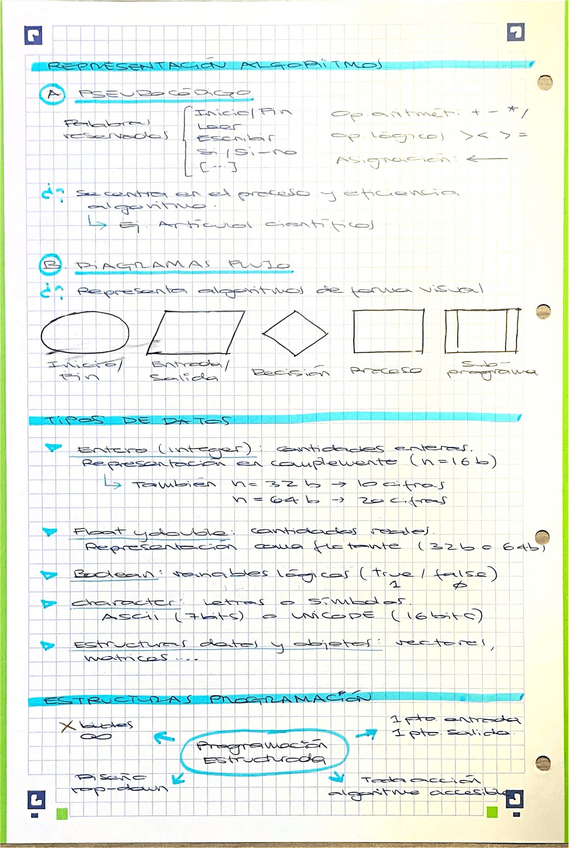 REPRESENTACIÓN ALGORITMOS
A PSEUDOCÓDIGO
Palabras reservadas
Inicio/Fin
Leer
Escribir
Si / Si-no
[...]
Op. aritmét: + - * /
Op lógicos > < > =
Asignación: ←
¿? Se centra en el proceso y eficiencia
algoritmo.
↳ Ej. Artículos científicos
B. DIAGRAMAS FLUJO
¿? Representa algoritmos de forma visual
Inicio/
Fin
Entrada/
Salida
Decisión
Proceso
Sub-
programa
TIPOS DE DATOS
Entero (integer): cantidades enteras.
Representación en complemento (n=16b)
↳ También n=32b → 10 cifras
n=64b → 20 cifras
Float y double: cantidades reales.
Representación coma flotante (32b o 64b)
Boolean: variables lógicas (true / false)
1 0
character: Letras o símbolos.
ASCII (7bits) o UNICODE (16bits)
Estructuras datos y objetos: vectores,
matrices...
ESTRUCTURAS PROGRAMACIÓN
X bucles
∞
Programación
Estructurada
1 pto entrada
1 pto salida.
Diseño
top-down
Toda acción
algoritmo accesible